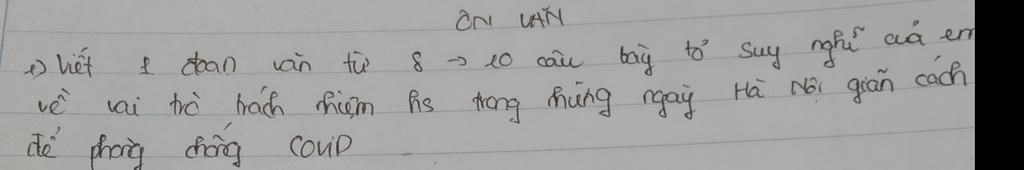 ÔN VĂN
1) Viết 1 đoạn văn từ 8 → 10 câu bày tỏ suy nghĩ của em
về vai trò trách nhiệm hs trong những ngày Hà Nội giãn cách
để phòng chống COVID